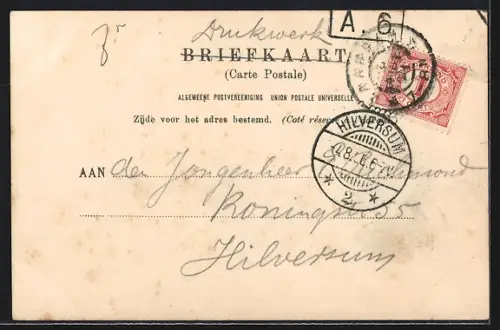 Drukwerk
A. 6
BRIEFKAART
(Carte Postale)
ALGEMEENE POSTVEREENIGING UNION POSTALE UNIVERSELLE
Zijde voor het adres bestemd. (Coté réservé
HILVERSUM
AAN den Jongenheer
2
Koningstr 55
Hilversum